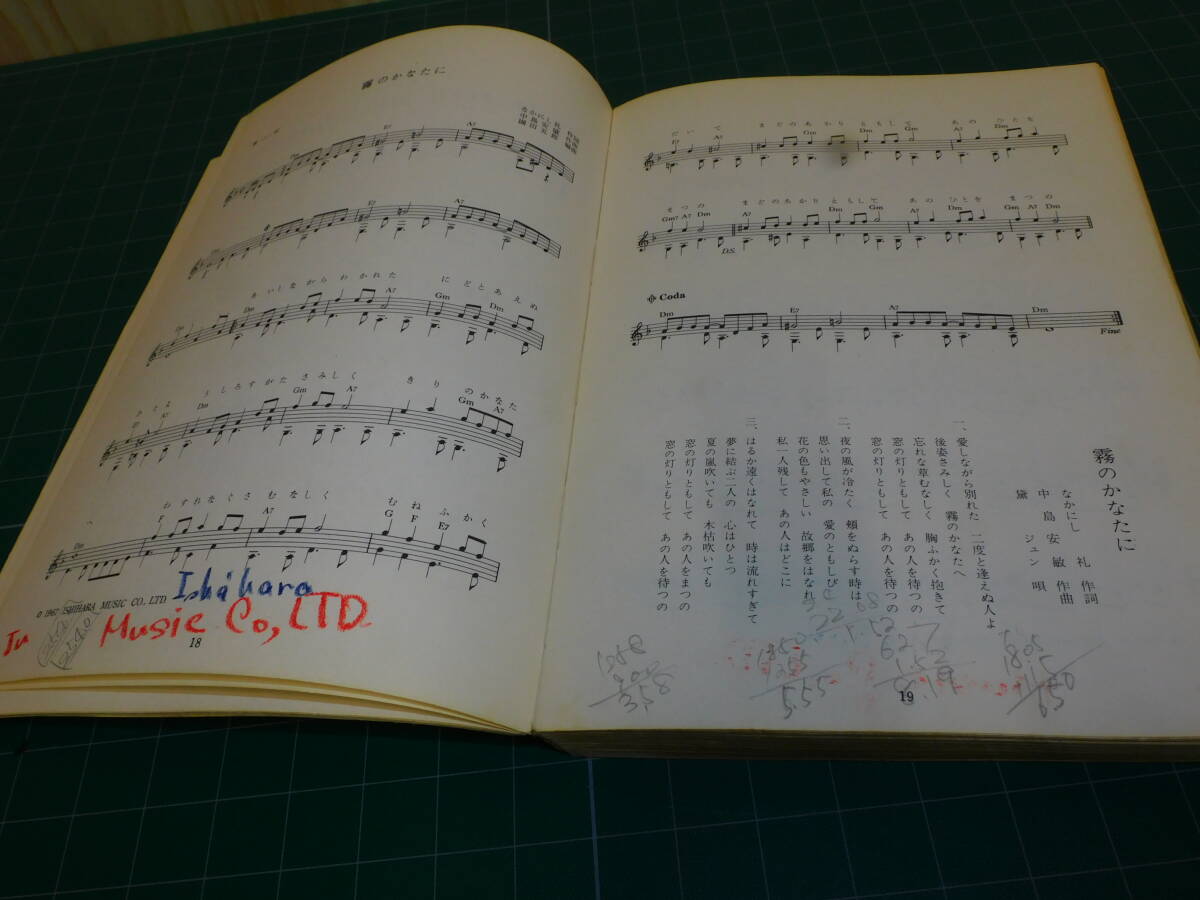 霧のかなたに
なかにし礼 作詞
E7 A7
E7 A7
あいしながら わかれた にどとあえぬ
Dm A7 Gm Dm
ひとよ うしろすがた さみしく きり のかなた
A7 Dm Gm A7 Gm A7
へ わすれなぐさ むなしく むねふかく
Dm F A7 G F E7
© 1967 ISHIHARA MUSIC CO., LTD.
Ishihara
Music Co, LTD
18
だいて まどのあかり ともして あの ひとを
A7 Gm Dm Gm A7
まつの まどのあかり ともして あの ひとを まつの
Gm7 A7 Dm A7 Dm Gm A7 Dm Gm A7 Dm
D.S.
Coda
Dm E7 A7 Dm
Fine
霧のかなたに
なかにし 礼 作詞
中島 安敏 作曲
黛 ジュン 唄
一、愛しながら別れた 二度と逢えぬ人よ
後姿さみしく 霧のかなたへ
忘れな草むなしく 胸ふかく抱きて
窓の灯りともして あの人を待つの
窓の灯りともして あの人を待つの
二、夜の風が冷たく 頬をぬらす時は
思い出して私の 愛のともしびを
花の色もやさしい 故郷をはなれ
私一人残して あの人はどこに
三、はるか遠くはなれて 時は流れすぎて
夢に結ぶ二人の 心はひとつ
夏の嵐吹いても 木枯吹いても
窓の灯りともして あの人をまつの
窓の灯りともして あの人を待つの
19